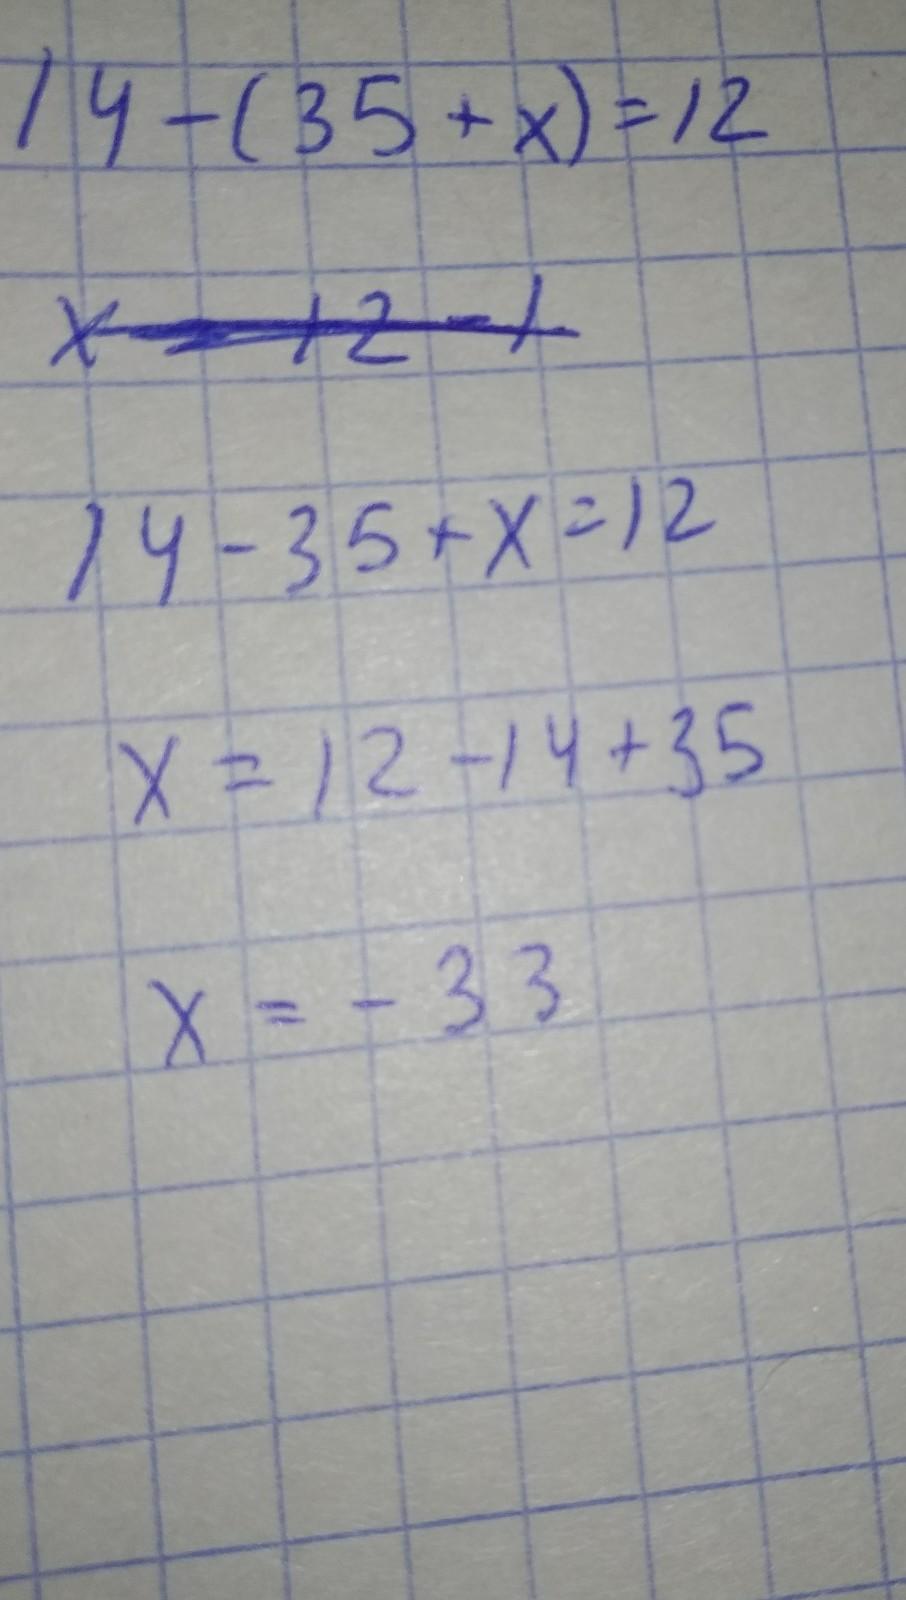 14-(35+x)=12
x = 12 - 1
14-35+x=12
x=12-14+35
x=-33